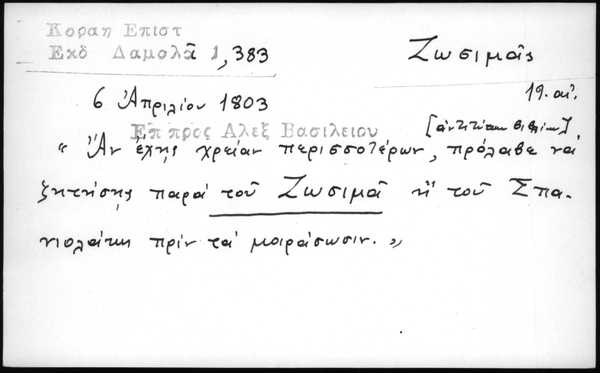 Κοραη Επιστ
Εκδ Δαμολᾶ 1,383
Ζωσιμᾶς
19. αἰ.
6 Ἀπριλίου 1803
Επ προς Αλεξ Βασιλειου
[ἀντίτυπα βιβλίων]
« Ἂν ἔχῃς χρείαν περισσοτέρων, πρόλαβε νὰ
ζητήσῃς παρὰ τοῦ Ζωσιμᾶ ἢ τοῦ Σπα-
νιολάκη πρὶν τὰ μοιράσωσιν. »